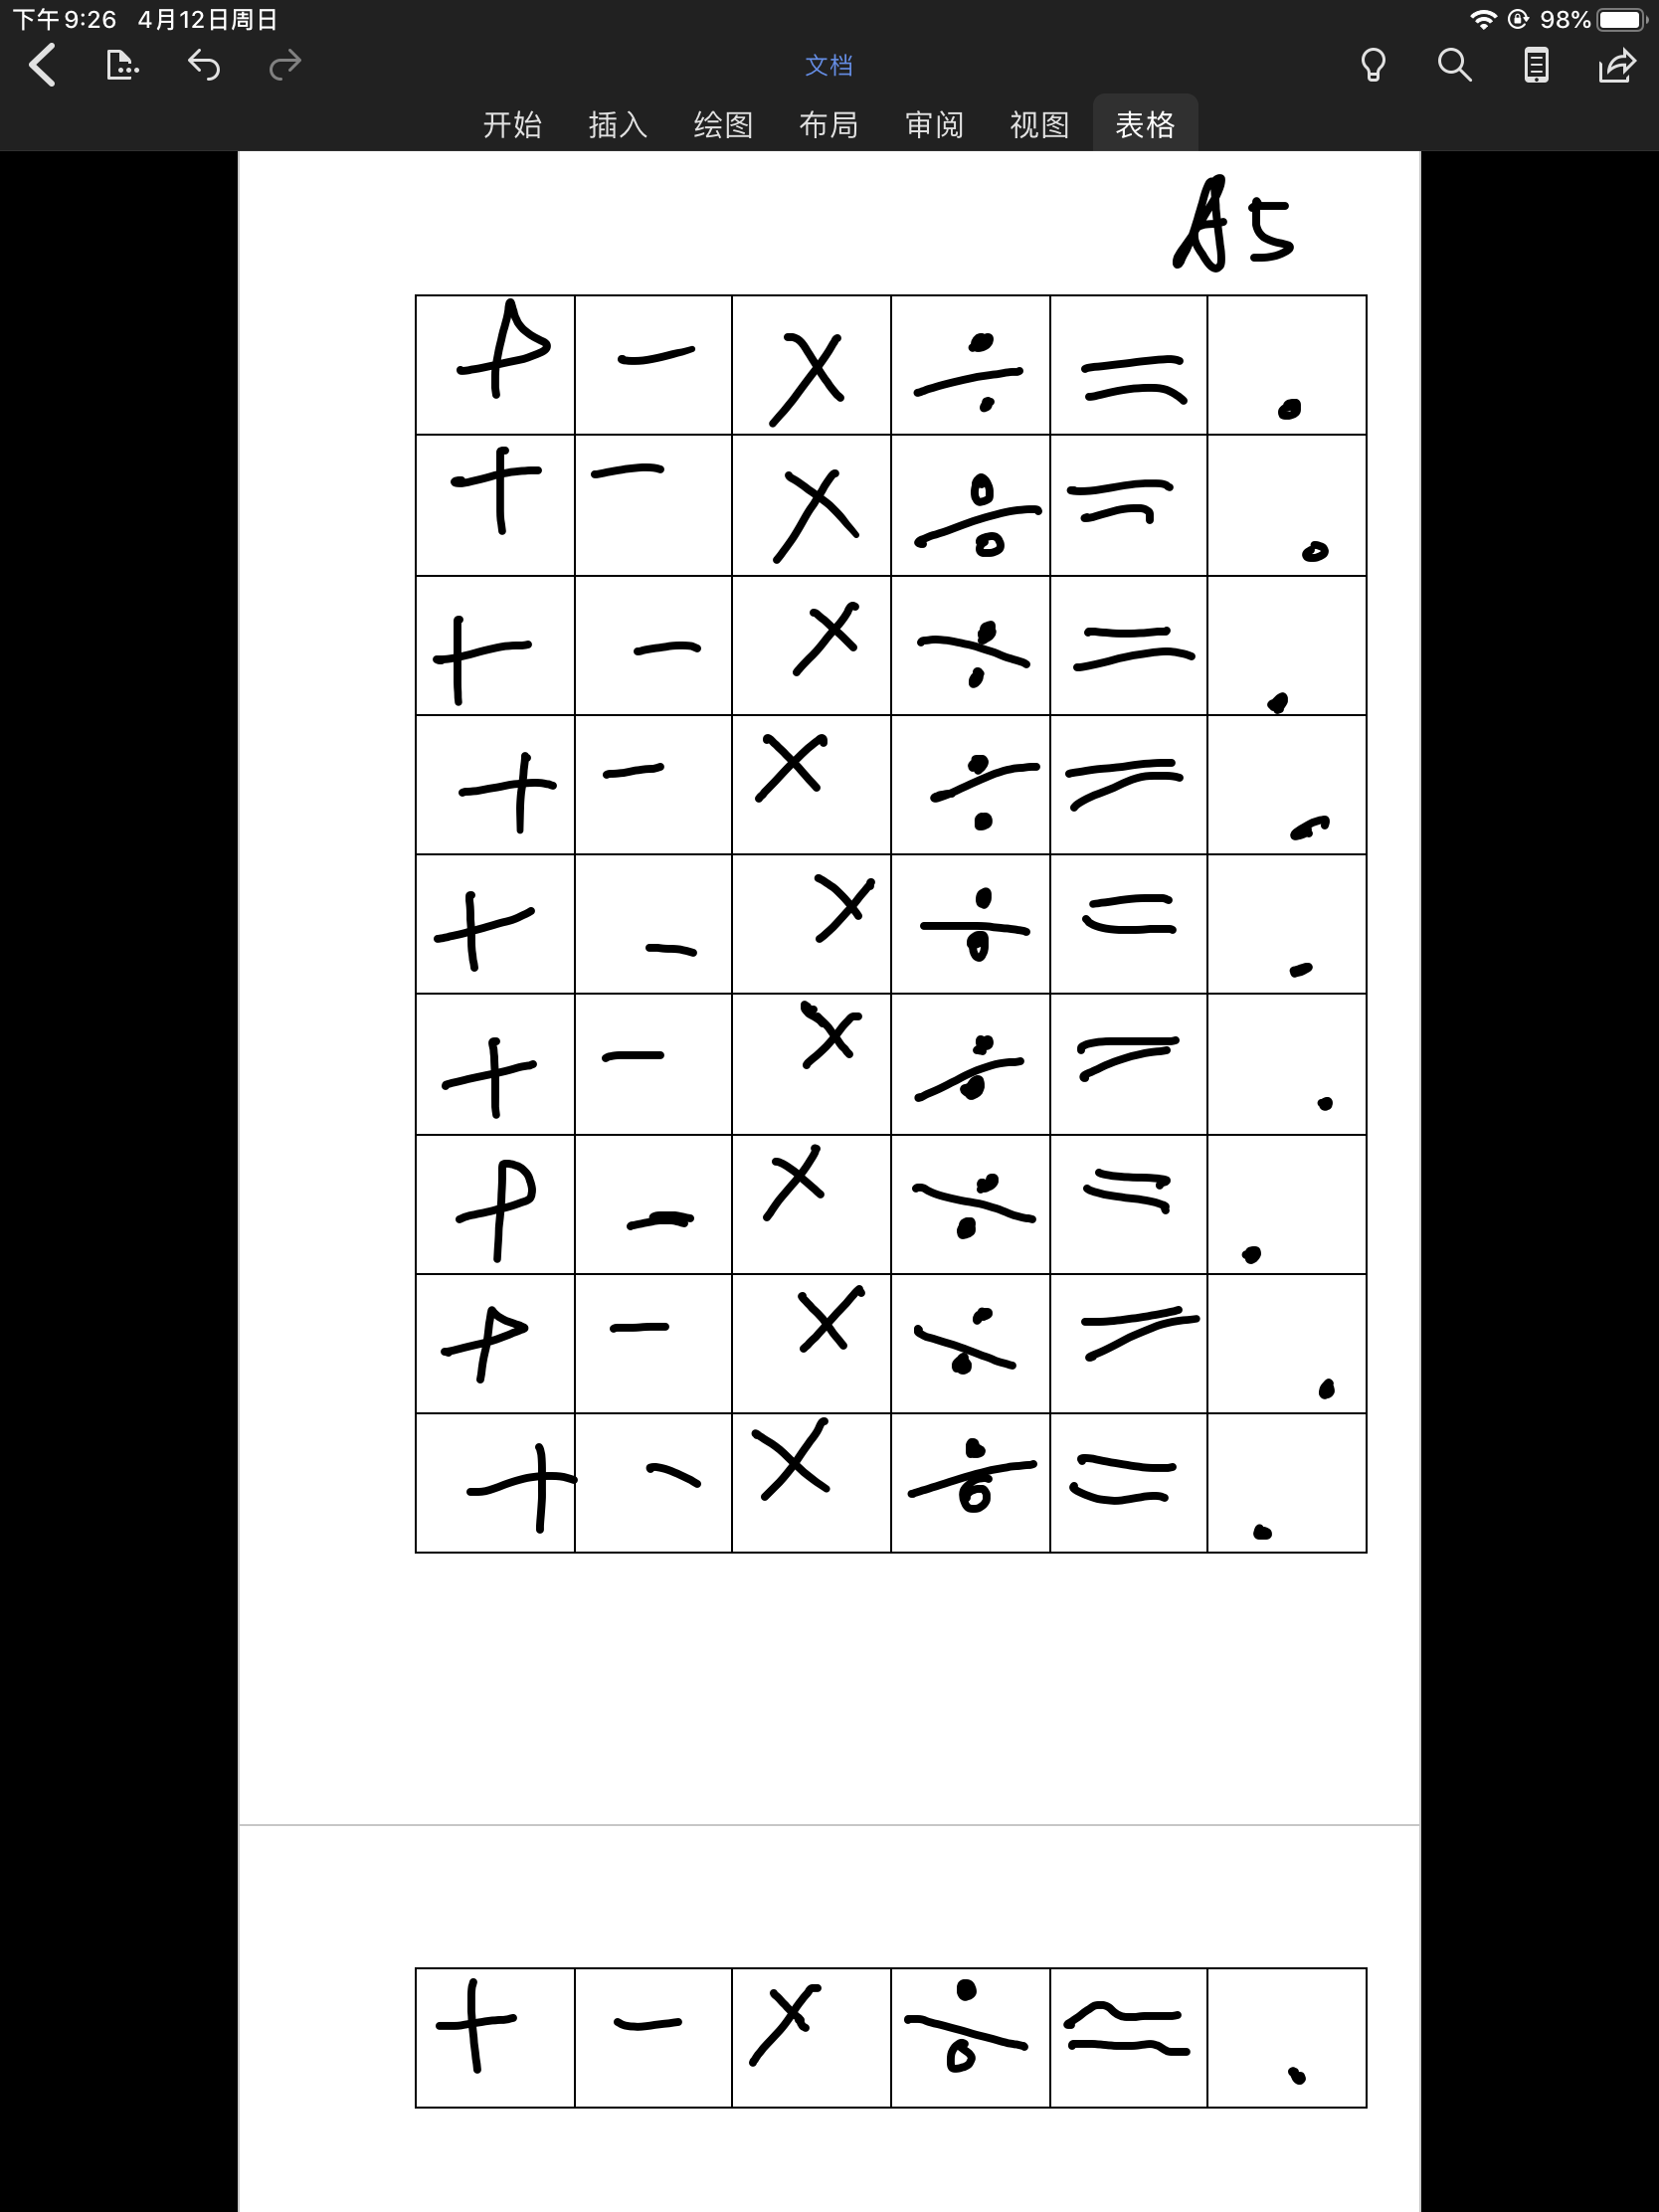 下午9:26 4月12日周日 98%
文档
开始 插入 绘图 布局 审阅 视图 表格
A5
+ - × ÷ = .
+ - × ÷ = .
+ - × ÷ = .
+ - × ÷ = .
+ - × ÷ = .
+ - × ÷ = .
+ - × ÷ = .
+ - × ÷ = .
+ - × ÷ = .
+ - × ÷ = .